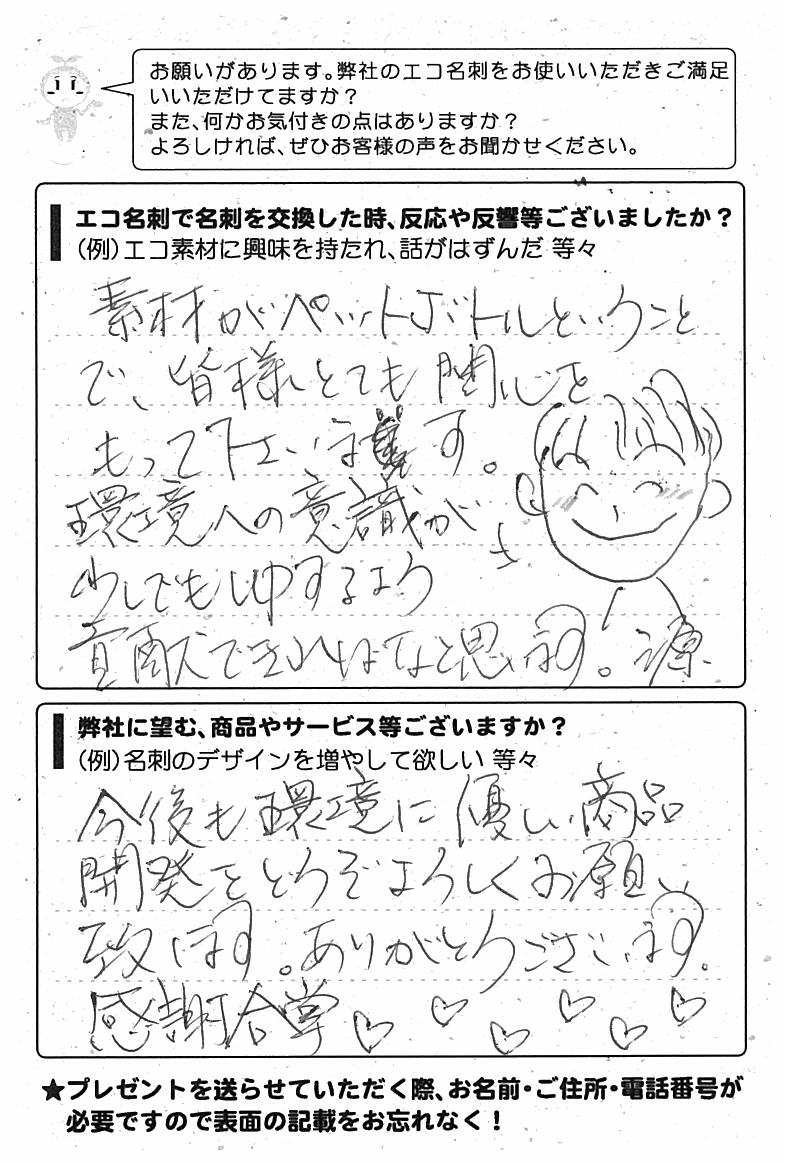 お願いがあります。弊社のエコ名刺をお使いいただきご満足
いいただけてますか？
また、何かお気付きの点はありますか？
よろしければ、ぜひお客様の声をお聞かせください。
エコ名刺で名刺を交換した時、反応や反響等ございましたか？
（例）エコ素材に興味を持たれ、話がはずんだ 等々
素材がペットボトルということ
で、皆様とても関心を
もって下さいます。
環境への意識が
少しでもUPするよう
貢献できればなと思います。
弊社に望む、商品やサービス等ございますか？
（例）名刺のデザインを増やして欲しい 等々
今後も環境に優しい商品
開発をどうぞよろしくお願い
致します。ありがとうございます。
感謝合掌♡♡♡♡♡♡
★プレゼントを送らせていただく際、お名前・ご住所・電話番号が
必要ですので表面の記載をお忘れなく！